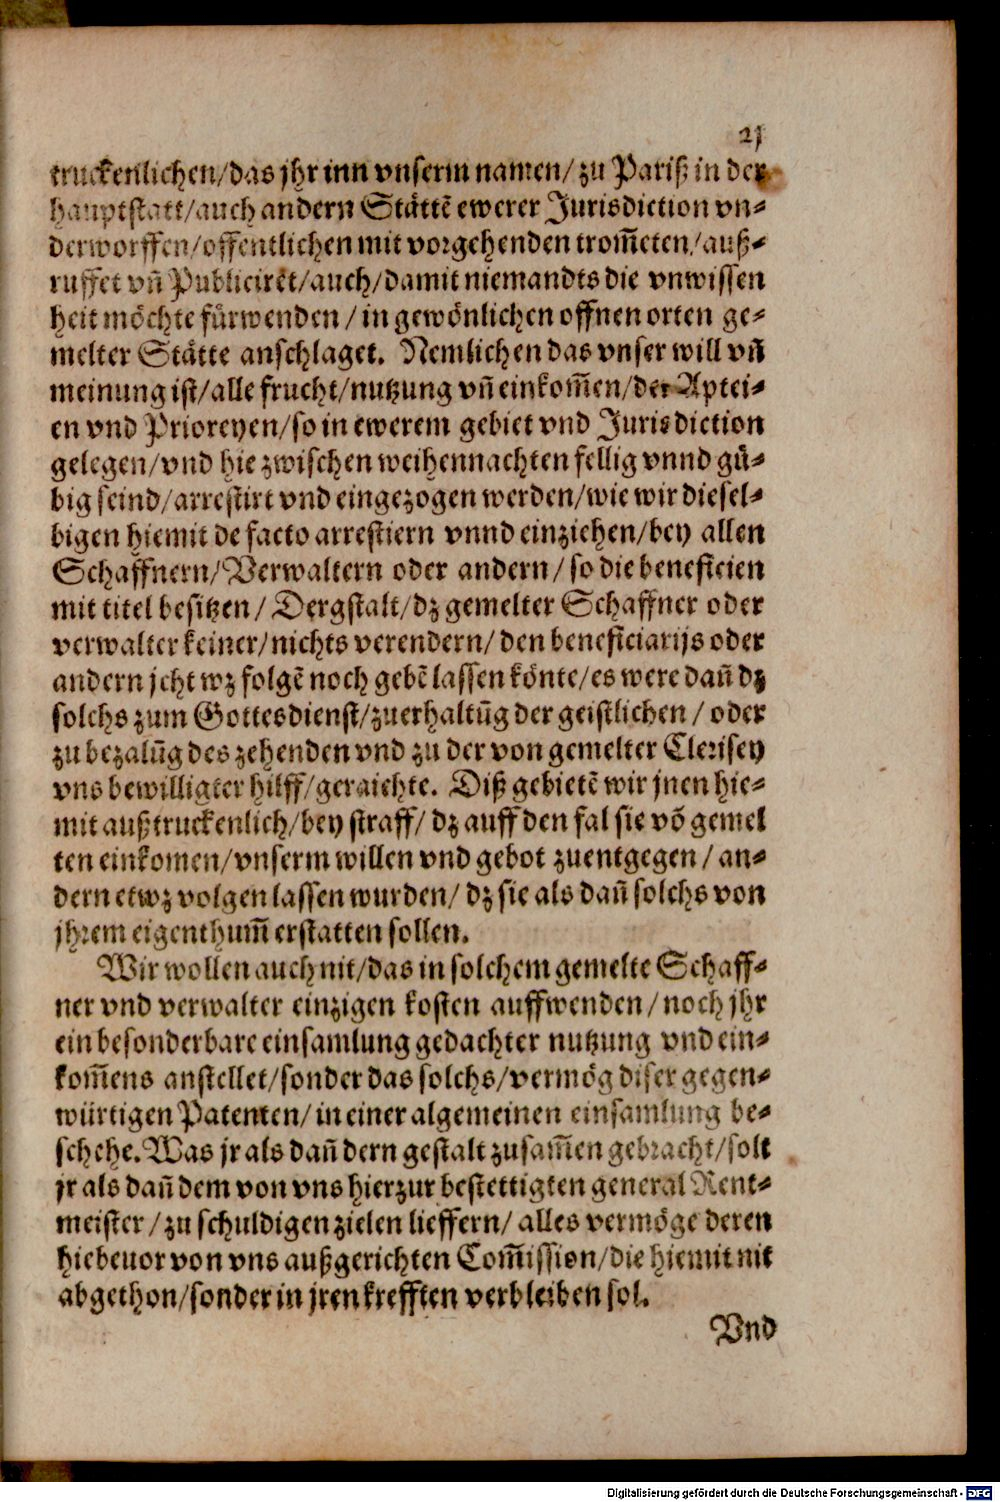 21
truckenlichen/das jhr inn vnserm namen/ zu Pariß in der
hauptstatt/auch andern Stättē ewerer Jurisdiction vn-
derworffen/offentlichen mit vorgehenden trom̃eten/auß-
ruffet vñ Publicirēt/auch/damit niemandts die vnwissen
heit möchte fürwenden / in gewönlichen offnen orten ge-
melter Stätte anschlaget. Nemlichen das vnser will vñ
meinung ist/alle frucht/nutzung vñ einkom̃en/der Aptei-
en vnd Prioreyen/so in ewerem gebiet vnd Jurisdiction
gelegen/vnd hie zwischen weihennachten fellig vnnd gü-
big seind/arrestirt vnd eingezogen werden/wie wir diesel-
bigen hiemit de facto arrestiern vnnd einziehen/bey allen
Schaffnern/Verwaltern oder andern/ so die beneficien
mit titel besitzen/ Dergstalt/dz gemelter Schaffner oder
verwalter keiner/nichts verendern/ den beneficiarijs oder
andern jcht wz folgē noch gebē lassen könte/es were dañ dz
solchs zum Gottesdienst/zuerhaltūg der geistlichen / oder
zu bezalūg des zehenden vnd zu der von gemelter Clerisey
vns bewilligter hilff/geraichte. Diß gebietē wir jnen hie-
mit außtruckenlich/bey straff/ dz auff den fal sie vō gemel
ten einkomen/vnserm willen vnd gebot zuentgegen / an-
dern etwz volgen lassen wurden/ dz sie als dañ solchs von
jhrem eigenthum̃ erstatten sollen.
Wir wollen auch nit/das in solchem gemelte Schaff-
ner vnd verwalter einzigen kosten auffwenden/ noch jhr
ein besonderbare einsamlung gedachter nutzung vnd ein-
kom̃ens anstellet/sonder das solchs/vermög diser gegen-
würtigen Patenten/in einer algemeinen einsamlung be-
schehe. Was jr als dañ dern gestalt zusam̃en gebracht/solt
jr als dañ dem von vns hierzur bestettigten general Rent-
meister / zu schuldigen zielen lieffern/ alles vermöge deren
hiebeuor von vns außgerichten Com̃ission/die hiemit nit
abgethon/sonder in jren krefften verbleiben sol.
Vnd
Digitalisierung gefördert durch die Deutsche Forschungsgemeinschaft - DFG